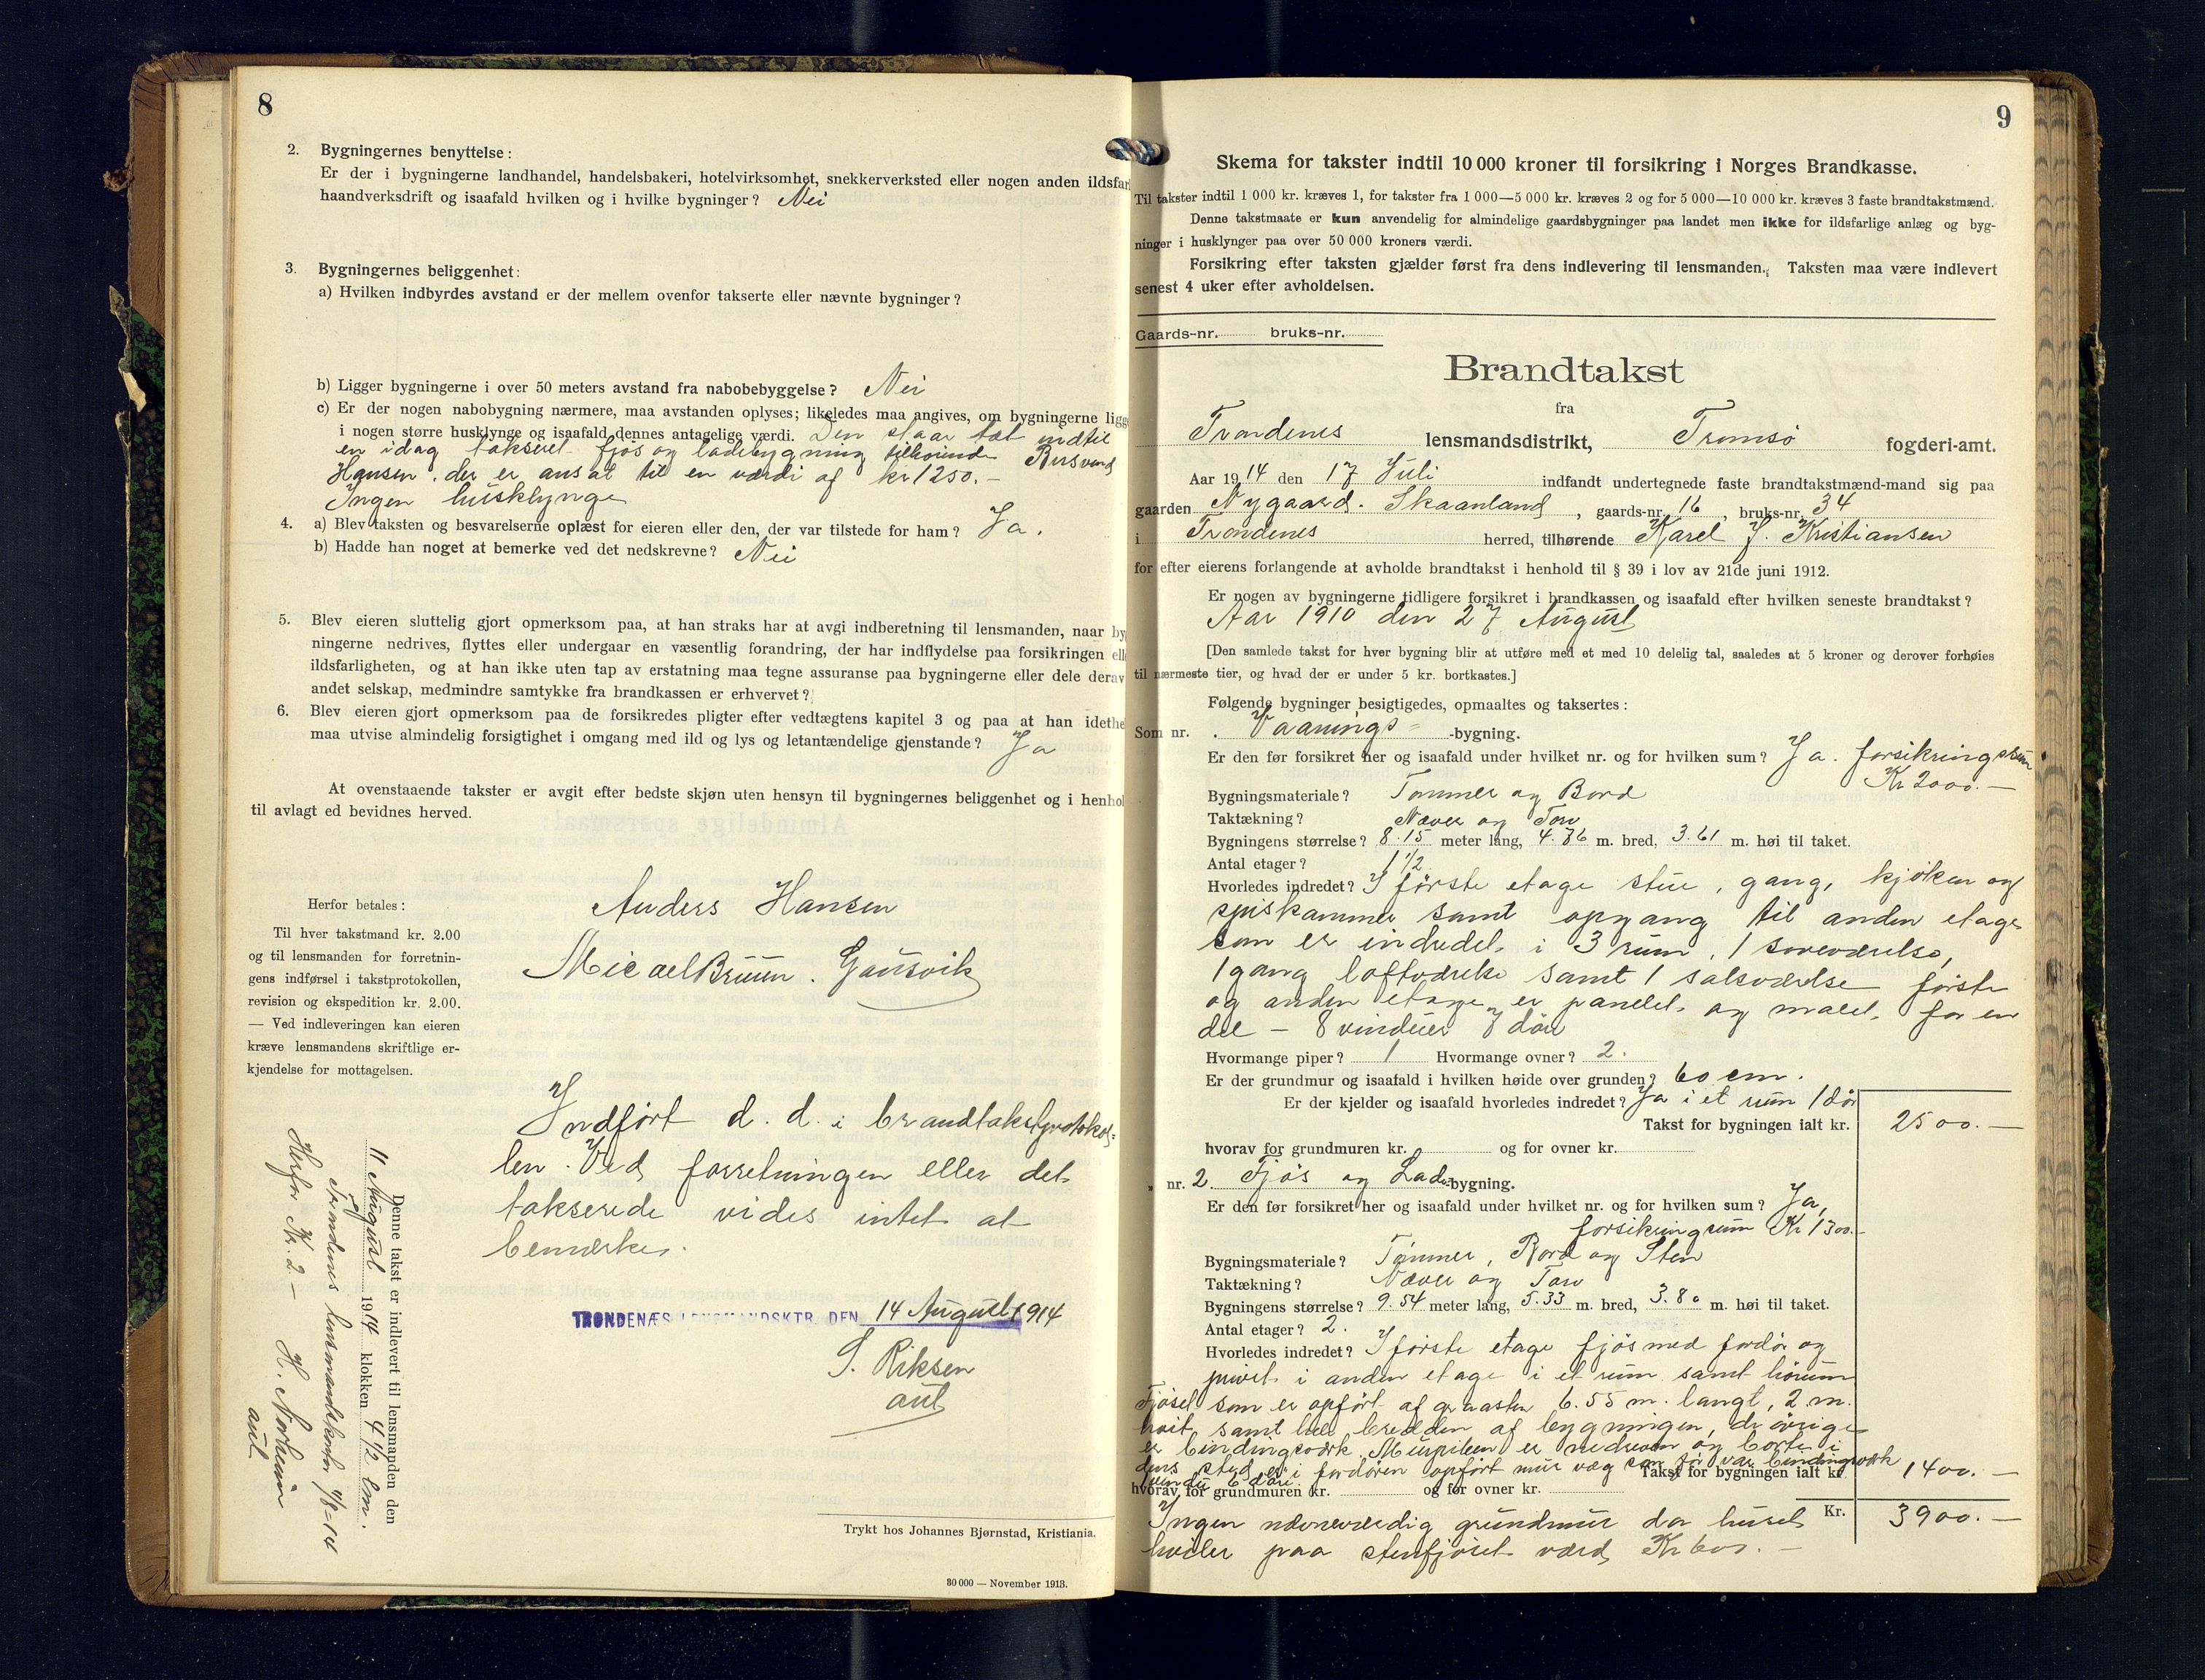 8
2. Bygningernes benyttelse:
Er der i bygningerne landhandel, handelsbakeri, hotelvirksomhet, snekkerverksted eller nogen anden ildsfar
haandverksdrift og isaafald hvilken og i hvilke bygninger? Nei
3. Bygningernes beliggenhet:
a) Hvilken indbyrdes avstand er der mellem ovenfor takserte eller nævnte bygninger?
b) Ligger bygningerne i over 50 meters avstand fra nabobebyggelse? Nei
c) Er der nogen nabobygning nærmere, maa avstanden oplyses; likeledes maa angives, om bygningerne ligg
i nogen større husklynge og isaafald dennes antagelige værdi. Den staar tæt indtil
en idag takseret fjøs og ladebygning tilhørende
Hansen, der er ansat til en værdi af kr 1250.–
Ingen husklynge
4. a) Blev taksten og besvarelserne oplæst for eieren eller den, der var tilstede for ham? Ja.
b) Hadde han noget at bemerke ved det nedskrevne? Nei
5. Blev eieren sluttelig gjort opmerksom paa, at han straks har at avgi indberetning til lensmanden, naar by
ningerne nedrives, flyttes eller undergaar en væsentlig forandring, der har indflydelse paa forsikringen ell
ildsfarligheten, og at han ikke uten tap av erstatning maa tegne assuranse paa bygningerne eller dele derav
andet selskap, medmindre samtykke fra brandkassen er erhvervet?
6. Blev eieren gjort opmerksom paa de forsikredes pligter efter vedtægtens kapitel 3 og paa at han idethe
maa utvise almindelig forsigtighet i omgang med ild og lys og letantændelige gjenstande? Ja
At ovenstaaende takster er avgit efter bedste skjøn uten hensyn til bygningernes beliggenhet og i henhol
til avlagt ed bevidnes herved.
Anders Hansen
Micael Bruun. Gausvik
Herfor betales:
Til hver takstmand kr. 2.00
og til lensmanden for forretnin-
gens indførsel i takstprotokollen,
revision og ekspedition kr. 2.00.
— Ved indleveringen kan eieren
kræve lensmandens skriftlige er-
kjendelse for mottagelsen.
Indført d. d. i brandtakstprotokol=
len. Ved forretningen eller det
takserede vides intet at
bemærkes.
TRONDENÆS LENSMANDSKTR. DEN 14 August 1914
S. Riksen
aut
Denne takst er indlevert til lensmanden den
11 August 1914 klokken 4 1/2 em.
Trondenes lensmandskontor 11/8-14
Herfor Kr. 2.–
H. Norheim
aut
Trykt hos Johannes Bjørnstad, Kristiania.
30 000 — November 1913.
9
Skema for takster indtil 10 000 kroner til forsikring i Norges Brandkasse.
Til takster indtil 1 000 kr. kræves 1, for takster fra 1 000—5 000 kr. kræves 2 og for 5 000—10 000 kr. kræves 3 faste brandtakstmænd.
Denne takstmaate er kun anvendelig for almindelige gaardsbygninger paa landet men ikke for ildsfarlige anlæg og byg-
ninger i husklynger paa over 50 000 kroners værdi.
Forsikring efter taksten gjælder først fra dens indlevering til lensmanden. Taksten maa være indlevert
senest 4 uker efter avholdelsen.
Gaards-nr. bruks-nr.
Brandtakst
fra
Trondenes lensmandsdistrikt, Tromsø fogderi-amt.
Aar 1914 den 17 Juli indfandt undertegnede faste brandtakstmænd-mand sig paa
gaarden Nygaard. Skaanland, gaards-nr. 16, bruks-nr. 34
i Trondenes herred, tilhørende Karel J. Kristiansen
for efter eierens forlangende at avholde brandtakst i henhold til § 39 i lov av 21de juni 1912.
Er nogen av bygningerne tidligere forsikret i brandkassen og isaafald efter hvilken seneste brandtakst?
Aar 1910 den 27 August
[Den samlede takst for hver bygning blir at utføre med et med 10 delelig tal, saaledes at 5 kroner og derover forhøies
til nærmeste tier, og hvad der er under 5 kr. bortkastes.]
Følgende bygninger besigtigedes, opmaaltes og taksertes:
Som nr. . Vaanings= -bygning.
Er den før forsikret her og isaafald under hvilket nr. og for hvilken sum? Ja. forsikringssum
Kr 2000.–
Bygningsmateriale? Tømmer og Bord
Taktækning? Næver og Torv
Bygningens størrelse? 8.15 meter lang, 4.76 m. bred, 3.61 m. høi til taket.
Antal etager? 1 1/2.
Hvorledes indredet? I første etage stue, gang, kjøken og
spiskammer samt opgang til anden etage
som er indredet i 3 rum, 1 soveværelse,
1 gang loftværelse samt 1 salsværelse første
og anden etage er panelet og malet for en
del – 8 vinduer 7 dør
Hvormange piper? 1 Hvormange ovner? 2.
Er der grundmur og isaafald i hvilken høide over grunden? 60 cm.
Er der kjelder og isaafald hvorledes indredet? Ja i et rum 1 dør
Takst for bygningen ialt kr. 2500.–
hvorav for grundmuren kr. og for ovner kr.
„ nr. 2. Fjøs og Lade-bygning.
Er den før forsikret her og isaafald under hvilket nr. og for hvilken sum? Ja,
forsikringsum Kr 1300.–
Bygningsmateriale? Tømmer, Bord og Sten
Taktækning? Næver og Torv
Bygningens størrelse? 9.54 meter lang, 5.33 m. bred, 3.80 m. høi til taket.
Antal etager? 2.
Hvorledes indredet? I første etage fjøs med fordør og
privet i anden etage i et rum samt hørum
Fjøset som er opført af graasten 6.55 m. langt, 2 m.
høit, samt hele bredden af bygningen, de øvrige
er bindingsværk. Murpiben er nedreven og borte i
dens sted er i fordøren opført mur væg som før var bindingværk
vindu 6 døre Takst for bygningen ialt kr. 1400.–
hvorav for grundmuren kr. og for ovner kr.
Kr. 3900.–
Ingen nævneværdig grundmur da huset
hviler paa stenfjøset værd Kr 600.–